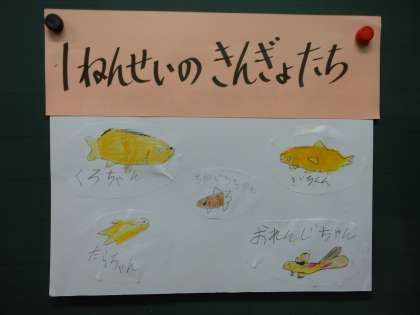 1ねんせいのきんぎょたち
くろちゃん
たらちゃん
おれんじちゃん